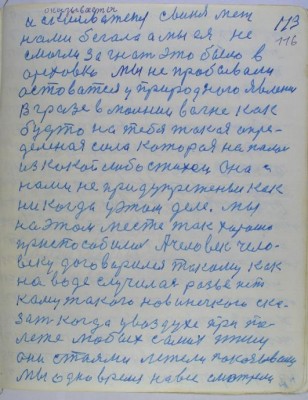 113
116
нами бегала а мы ея не
смогли загнат это было в
орховки мы не пробовали
остоватся у природного явления
В грозе в молнии вогне как
будто на тебя такая опре-
деленая сила которая напали
из какой либо стихии она
нами не придупрежены как
никогда у этом деле. мы
на этом месте так хорошо
приспособилис А человек чело-
веку договорился такому как
на воде случилас разве нет
каму такого новинского ска-
зат когда увоздухе при по-
лете любых самих птиц
они стаями летели показывали
мы одно время на все смотрели